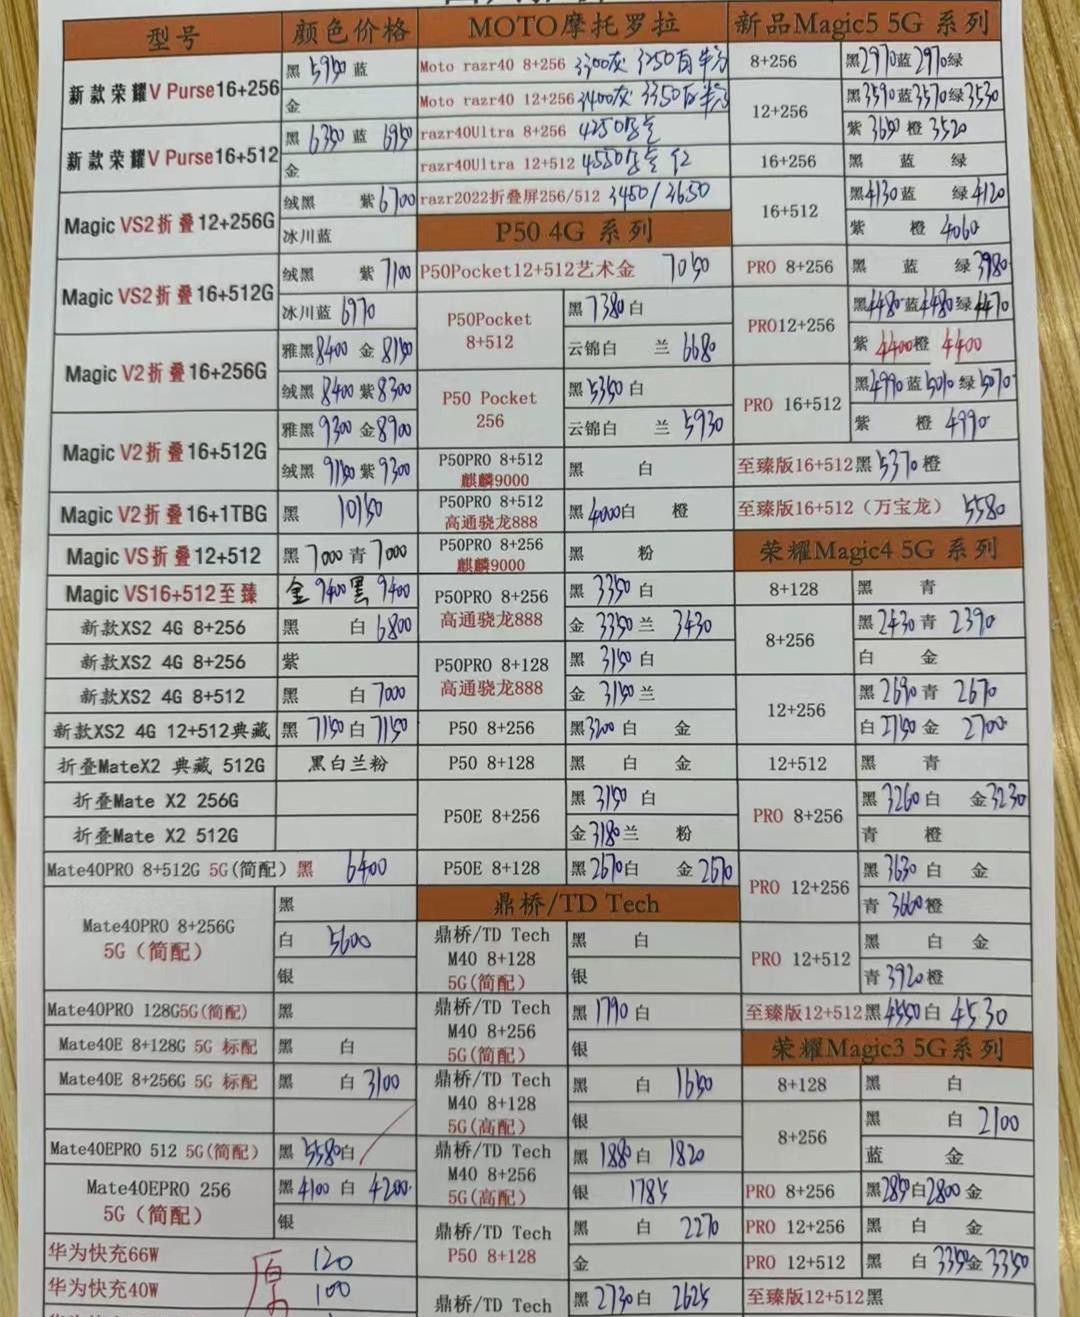 型号 颜色价格
新款荣耀V Purse16+256 黑 5950 蓝
金
新款荣耀V Purse16+512 黑 6350 蓝 6950
金
Magic VS2折叠12+256G 绒黑 紫 6700
冰川蓝
Magic VS2折叠16+512G 绒黑 紫 7100
冰川蓝 6970
Magic V2折叠16+256G 雅黑8400 金 8150
绒黑 8400 紫8300
Magic V2折叠16+512G 雅黑9300 金8900
绒黑 9150 紫 9300
Magic V2折叠16+1TBG 黑 10150
Magic VS折叠12+512 黑 7000 青 7000
Magic VS16+512至臻 金 9400 黑 9400
新款XS2 4G 8+256 黑 白 6800
新款XS2 4G 8+256 紫
新款XS2 4G 8+512 黑 白 7000
新款XS2 4G 12+512典藏 黑 7150 白 7150
折叠MateX2 典藏 512G 黑白兰粉
折叠Mate X2 256G
折叠Mate X2 512G
Mate40PRO 8+512G 5G(简配) 黑 6400
Mate40PRO 8+256G
5G (简配)
黑
白 5600
银
Mate40PRO 128G5G(简配) 黑
Mate40E 8+128G 5G 标配 黑 白
Mate40E 8+256G 5G 标配 黑 白 3100
Mate40EPRO 512 5G(简配) 黑 5580白
Mate40EPRO 256
5G (简配)
黑 4100 白 4200
银
华为快充66W 120
华为快充40W 100
原
MOTO摩托罗拉
Moto razr40 8+256 3300灰 3250白
Moto razr40 12+256 3400灰 3350白
razr40Ultra 8+256 4250
razr40Ultra 12+512 4550 红
razr2022折叠屏256/512 3450/3650
P50 4G 系列
P50Pocket12+512艺术金 7050
P50Pocket
8+512
黑 7380 白
云锦白 兰 6680
P50 Pocket
256
黑 5350 白
云锦白 兰 5930
P50PRO 8+512
麒麟9000
黑 白
P50PRO 8+512
高通骁龙888
黑 4000白 橙
P50PRO 8+256
麒麟9000
黑 粉
P50PRO 8+256
高通骁龙888
黑 3350 白
金 3350 兰 3430
P50PRO 8+128
高通骁龙888
黑 3150 白
金 3150 兰
P50 8+256 黑3200 白 金
P50 8+128 黑 白 金
P50E 8+256 黑 3150 白
金 3180兰 粉
P50E 8+128 黑 2670白 金 2670
鼎桥/TD Tech
鼎桥/TD Tech
M40 8+128
5G(简配)
黑 白
银
鼎桥/TD Tech
M40 8+256
5G(简配)
黑 1790 白
银
鼎桥/TD Tech
M40 8+128
5G(高配)
黑 白 1650
银
鼎桥/TD Tech
M40 8+256
5G(高配)
黑 1880 白 1820
银 1785
鼎桥/TD Tech
P50 8+128
黑 白 2270
金
鼎桥/TD Tech 黑 2730白 2625
新品Magic5 5G 系列
8+256 黑2970蓝2970绿
12+256 黑3590蓝3570绿3530
紫 3650 橙 3520
16+256 黑 蓝 绿
16+512 黑4130蓝 绿4120
紫 橙 4060
PRO 8+256 黑 蓝 绿3980
PRO12+256 黑4480蓝4480绿4470
紫 4400橙 4400
PRO 16+512 黑4990蓝5010绿5070
紫 橙 4990
至臻版16+512 黑 5370 橙
至臻版16+512 (万宝龙) 5580
荣耀Magic4 5G 系列
8+128 黑 青
8+256 黑 2430 青 2390
白 金
12+256 黑 2690 青 2670
白 2750 金 2700
12+512 黑 青
PRO 8+256 黑 3260 白 金3230
青 橙
PRO 12+256 黑 3630 白 金
青 3660橙
PRO 12+512 黑 白 金
青 3920橙
至臻版12+512黑4550白 4530
荣耀Magic3 5G系列
8+128 黑 白
8+256 黑 白 2100
蓝 金
PRO 8+256 黑2850白2800 金
PRO 12+256 黑 白 金
PRO 12+512 黑 白 3350金 3350
至臻版12+512黑